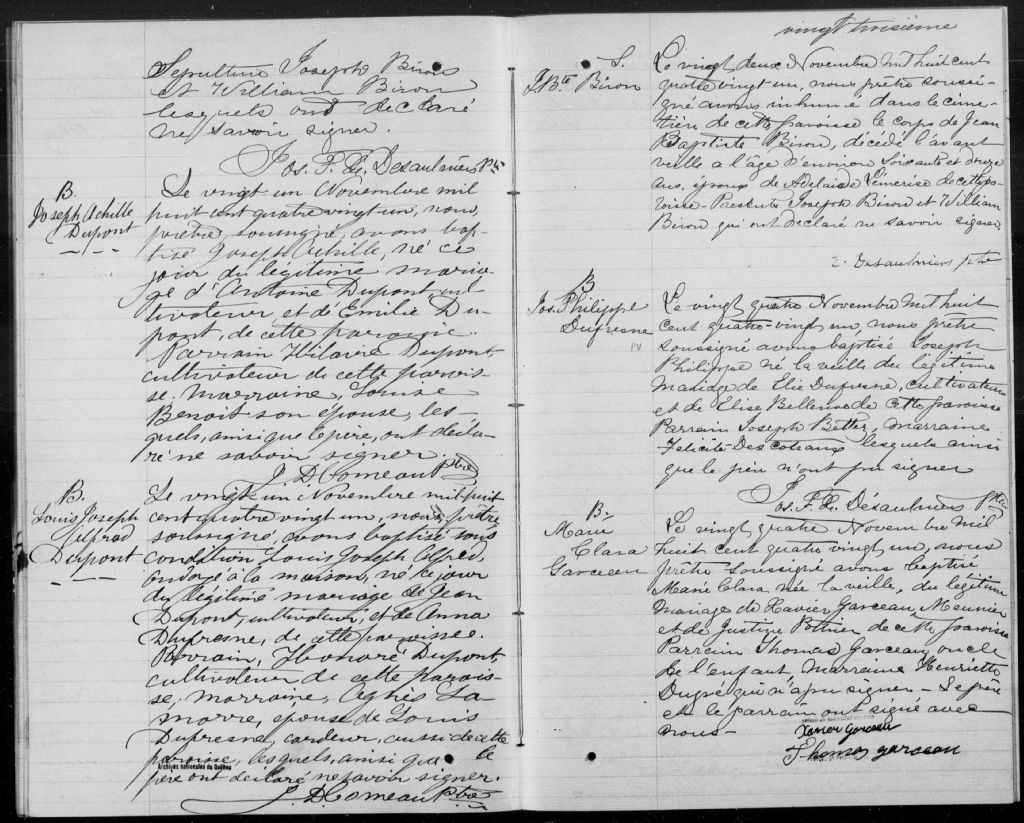 Sepulture Joseph Biron
et William Biron
lesquels ont declaré
ne savoir signer.
Jos. F. L. Desaulniers Ptre
B
Joseph Achille
Dupont
Le vingt un Novembre mil
huit cent quatre vingt un, nous,
prêtre, soussigné, avons bap-
tisé Joseph Achille, né ce
jour du légitime maria-
ge d'Antoine Dupont, cul-
tivateur, et de Emilie Du-
pont, de cette paroisse.
Parrain Hilaire Dupont,
cultivateur de cette parois-
se. Marraine, Louise
Benoit son épouse, les-
quels, ainsi que le père, ont décla-
ré ne savoir signer.
J. D. Comeau Ptre
B.
Louis Joseph
Alfred
Dupont
Le vingt un Novembre mil huit
cent quatre vingt un, nous, prêtre
soussigné, avons baptisé sous
condition Louis Joseph Alfred,
ondoyé à la maison, né ce jour
du légitime mariage de Jean
Dupont, cultivateur, et de Anna
Dufresne, de cette paroisse.
Parrain, Honoré Dupont,
cultivateur de cette parois-
se. marraine, Agnès La
marre, épouse de Louis
Dufresne, cardeur, aussi de cette
paroisse, lesquels, ainsi que le
père ont déclaré ne savoir signer.
Archives nationales du Québec
J. D. Comeau Ptre
vingt troisième
S.
J. Bte Biron
Le vingt deux Novembre mil huit cent
quatre vingt un, nous prêtre soussi-
gné avons inhumé dans le cime-
tière de cette paroisse le corps de Jean
Baptiste Biron, décédé l'avant
veille a l'âge d'environ soixante et douze
ans, époux de Adelaide Lemerise de cette pa-
roisse - Presents Joseph Biron et William
Biron qui ont declaré ne savoir signer,
Desaulniers ptre
B
Jos. Philippe
Dufresne
PV
Le vingt quatre Novembre mil huit
cent quatre-vingt un, nous prêtre
soussigné avons baptisé Joseph
Philippe né la veille du légitime
Mariage de Elie Dufresne, cultivateur
et de Elise Bellerive de cette paroisse
Parrain Joseph Better, marraine
Félicité Descoteaux lesquels ainsi
que le père n'ont pu signer
Jos. F. L. Désaulniers Ptre
B.
Marie
Clara
Garceau
Le vingt quatre Novembre mil
huit cent quatre vingt un, nous
prêtre soussigné avons baptisé
Marie Clara née la veille, du légitime
mariage de Xavier Garceau, Meunier
et de Justine Pothier de cette paroisse
Parrain Thomas Garceau oncle
de l'enfant Marraine Henriette
Dugré qui n'a pu signer - Le père
et le parrain ont signé avec
nous -
Xavier Garceau
Thomas garceau